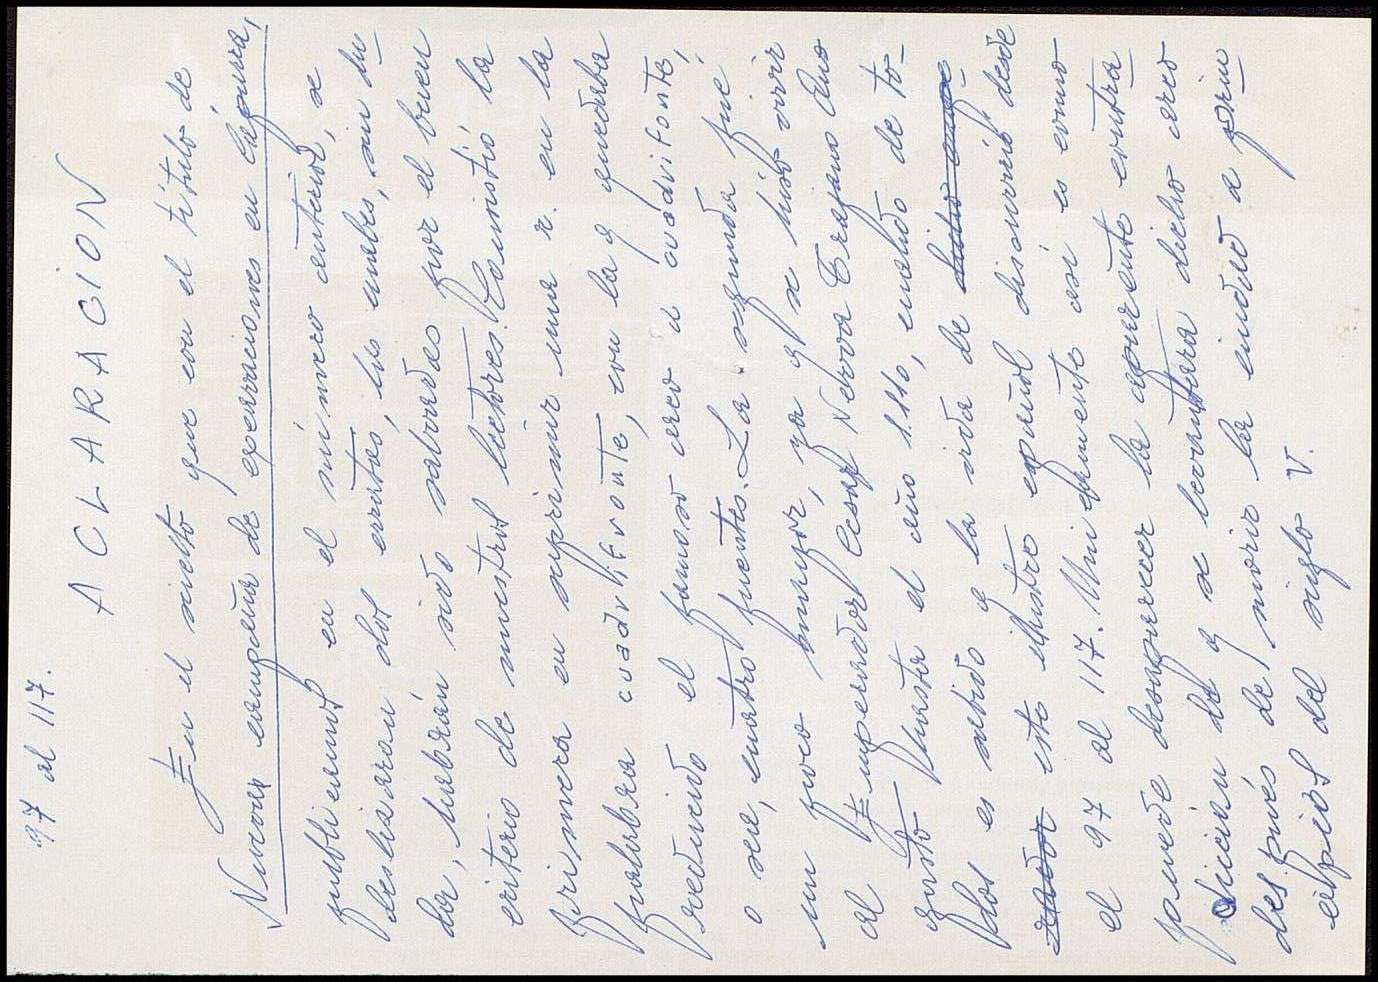 97 al 117.
ACLARACION
En el suelto que con el título de
Nueva campaña de excavaciones en Cáparra,
publicamos en el número anterior, se
deslizaron dos erratas, las cuales, sin du-
da, habrán sido salvadas por el buen
criterio de nuestros lectores. Consistió la
primera en suprimir una r. en la
palabra cuadrifronte, con la q quedaba
reducido el famoso arco a cuadrifonte,
o sea, cuatro fuentes. La segunda fué
un poco mayor, ya q se hizo vivir
al Emperador César Nerva Trajano Au-
gusto hasta el año 1.110, cuando de to-
dos es sabido q la vida de
este ilustre español discurrió desde
el 97 al 117. Unicamente así es como
puede desaparecer la aparente contra
dicción de q se levantara dicho arco
después de morir la ciudad a prin
cipios del siglo V.